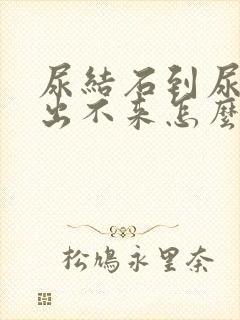 尿結石到尿
出不来怎麼
松鳩永里奈